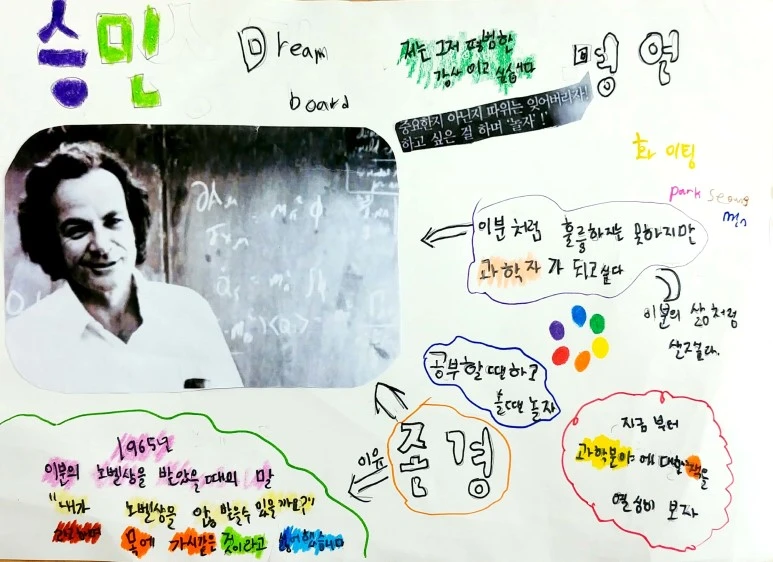 승민
Dream
board
저는 그저 평범한
감사 하고 싶습니다
중요한지 아닌지 따위는 잊어버리자!
하고 싶은 걸 하며 '놀자'!
명언
화이팅
park seoung
min
이분처럼 훌륭하지는 못하지만
과학자가 되고싶다
이분의 삶처럼
살고싶다.
공부할땐하고
놀땐놀자
존경
이유
1965년
이분의 노벨상을 받았을때의 말
"내가 노벨상을 안 받을수 있을까요?"
목에 가시같은 것이라고
지금부터
과학분야에 대한 책을
열심히 보자